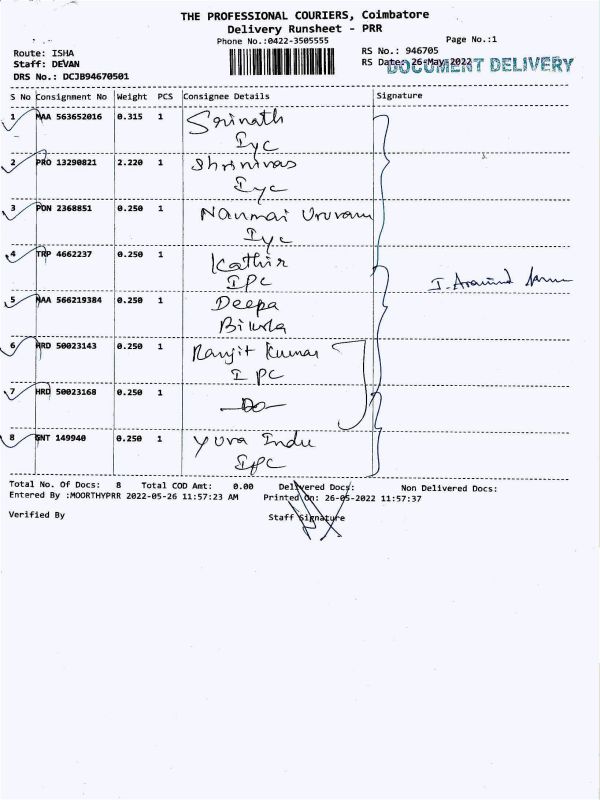 THE PROFESSIONAL COURIERS, Coimbatore
Delivery Runsheet - PRR
Phone No.:0422-3505555
Page No.:1
Route: ISHA
RS No.: 946705
Staff: DEVAN
RS Date: 26-May-2022
DOCUMENT DELIVERY
DRS No.: DCJB94670501
S No Consignment No Weight PCS Consignee Details Signature
1 MAA 563652016 0.315 1 Srinath
Iyc
2 PRO 13290821 2.220 1 Shrinivas
Iyc
3 PON 2368851 0.250 1 Nanmai Uruvam
Iyc
4 TRP 4662237 0.250 1 Kathir
IPC
I. Aravind
5 MAA 566219384 0.250 1 Deepa
6 HRD 50023143 0.250 1 Ranjit Kumar
I PC
7 HRD 50023168 0.250 1 -Do-
8 GNT 149940 0.250 1 Yuva Indu
IPC
Total No. Of Docs: 8 Total COD Amt: 0.00 Delivered Docs: Non Delivered Docs:
Entered By :MOORTHYPRR 2022-05-26 11:57:23 AM Printed On: 26-05-2022 11:57:37
Verified By Staff Signature